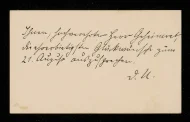 Ihnen, hochverehrter Herr Geheimrat,
die ehrerbietigsten Glückwünsche zum
21. August auszusprechen.
D. U.